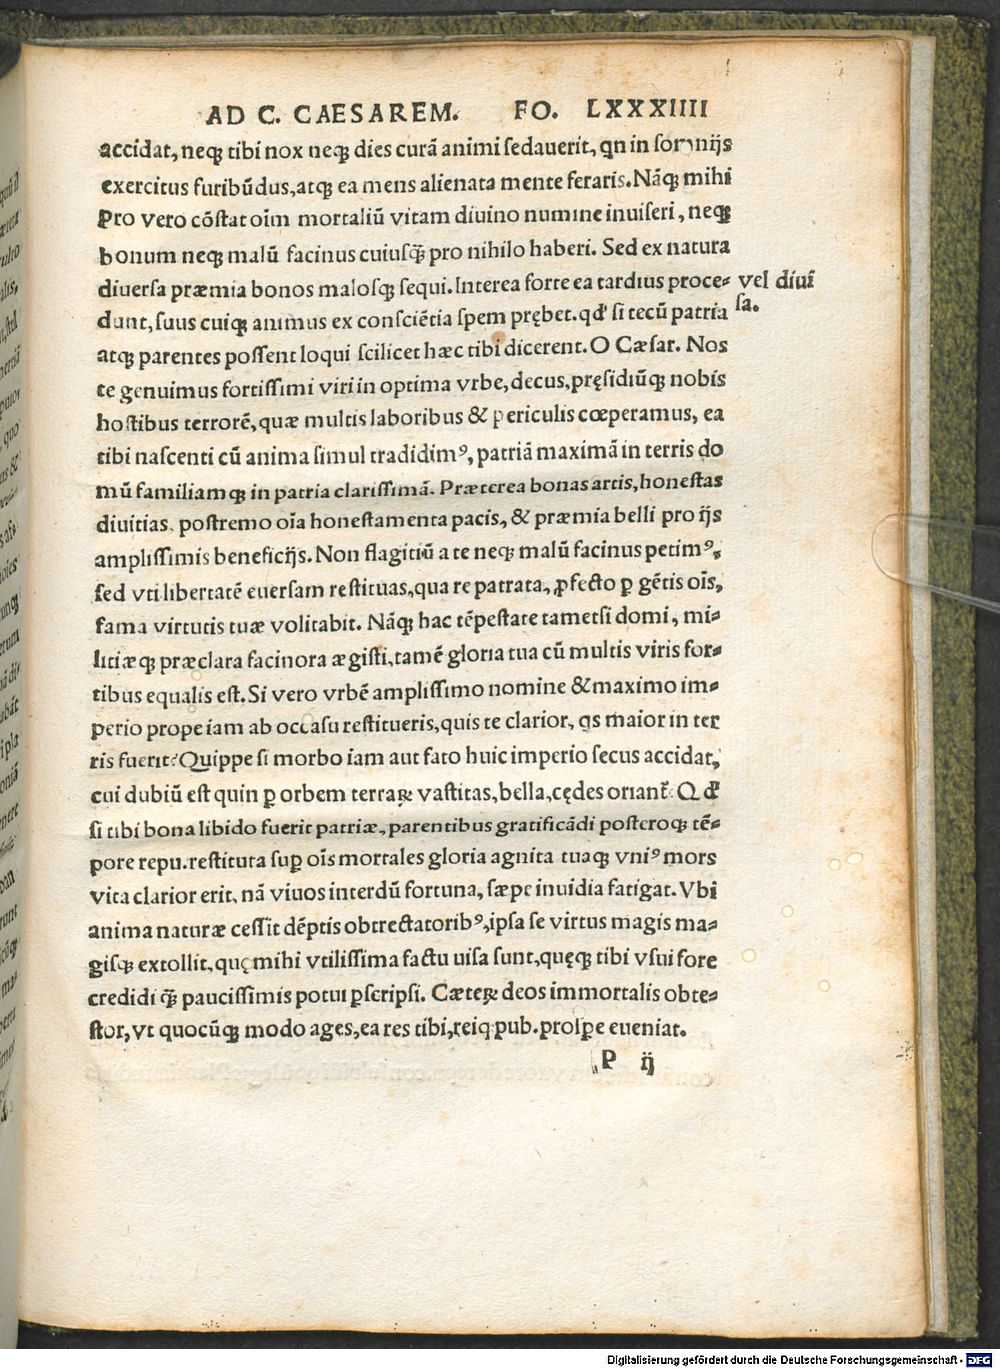 AD C. CAESAREM. FO. LXXXIIII
accidat, neqꝫ tibi nox neqꝫ dies curā animi sedauerit, qn in somnijs
exercitus furibūdus, atqꝫ ea mens alienata mente feraris. Nāqꝫ mihi
pro vero cōstat oīm mortaliū vitam diuino numine inuiseri, neqꝫ
bonum neqꝫ malū facinus cuiusqꝫ̄ pro nihilo haberi. Sed ex natura
diuersa præmia bonos malosqꝫ sequi. Interea forte ea tardius proce-
vel diuī
sa.
dunt, suus cuiqꝫ animus ex consciētia spem prębet. qď si tecū patria
atqꝫ parentes possent loqui scilicet hæc tibi dicerent. O Cæsar. Nos
te genuimus fortissimi viri in optima vrbe, decus, pręsidiūqꝫ nobis
hostibus terrorē, quæ multis laboribus & periculis cœperamus, ea
tibi nascenti cū anima simul tradidimꝰ, patriā maximā in terris do
mū familiamqꝫ in patria clarissimā. Præterea bonas artis, honestas
diuitias, postremo oīa honestamenta pacis, & præmia belli pro ijs
amplissimis beneficijs. Non flagitiū a te neqꝫ malū facinus petimꝰ,
sed vti libertatē euersam restituas, qua re patrata, ꝓfecto ꝑ gētis oīs,
fama virtutis tuæ volitabit. Nāqꝫ hac tēpestate tametsi domi, mi-
litiæqꝫ præclara facinora ægisti, tamē gloria tua cū multis viris for-
tibus equalis est. Si vero vrbē amplissimo nomine & maximo im-
perio prope iam ab occasu restitueris, quis te clarior, qs maior in ter
ris fuerit? Quippe si morbo iam aut fato huic imperio secus accidat,
cui dubiū est quin ꝑ orbem terraꝝ vastitas, bella, cędes oriant᷑. Qď
si tibi bona libido fuerit patriæ, parentibus gratificādi posteroqꝫ tē-
pore repu. restituta suꝑ oīs mortales gloria agnita tuaqꝫ vniꝰ mors
vita clarior erit, nā viuos interdū fortuna, sæpe inuidia fatigat. Vbi
anima naturæ cessit dēptis obtrectatoribꝰ, ipsa se virtus magis ma-
gisqꝫ extollit, quę mihi vtilissima factu uisa sunt, quęqꝫ tibi vsui fore
credidi qꝫ̄ paucissimis potui ꝑscripsi. Cæteꝝ deos immortalis obte-
stor, vt quocūqꝫ modo ages, ea res tibi, reiqꝫ pub. prospe eueniat.
P ij
Digitalisierung gefördert durch die Deutsche Forschungsgemeinschaft - DFG